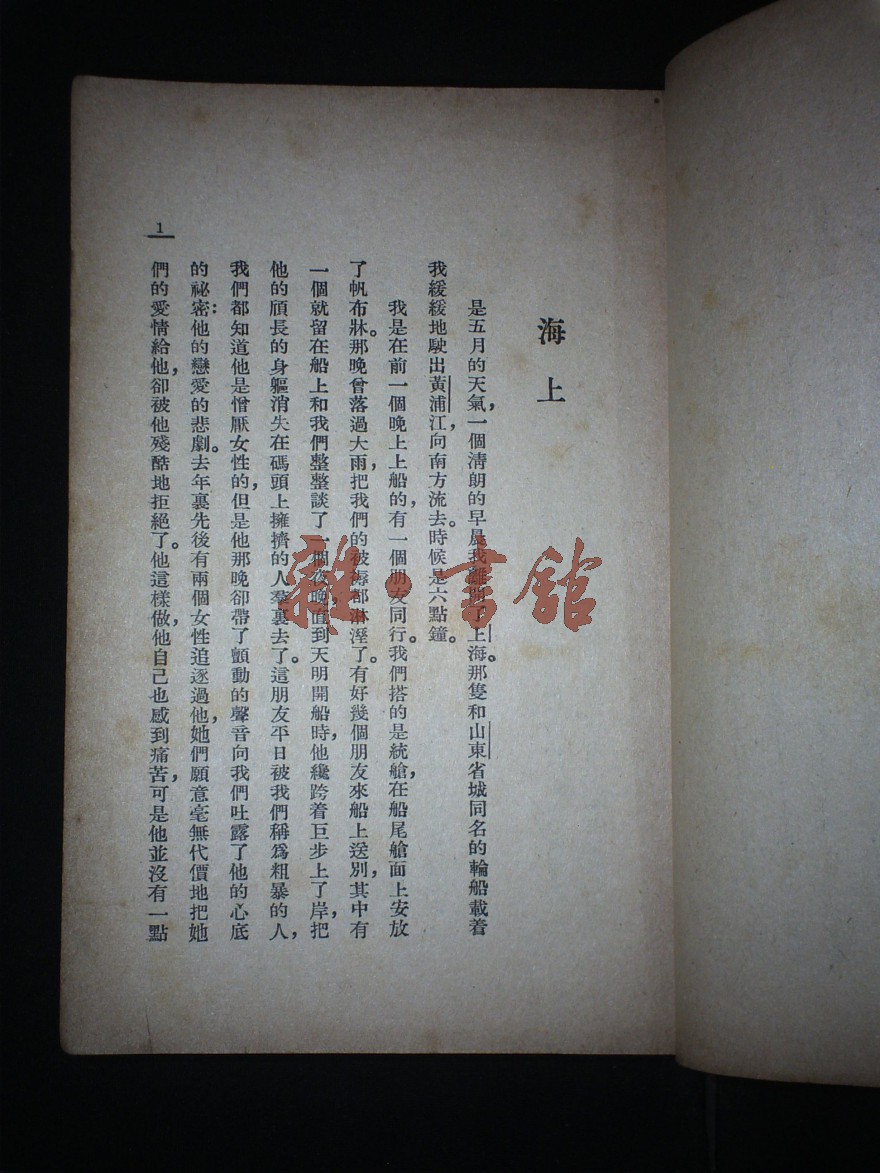 海上
是五月的天氣，一個清朗的早晨我離開了上海。那隻和山東省城同名的輪船載着
我緩緩地駛出黃浦江，向南方流去。時候是六點鐘。
我是在前一個晚上上船的，有一個朋友同行。我們搭的是統艙，在船尾艙面上安放
了帆布牀。那晚曾落過大雨，把我們的被褥都淋溼了。有好幾個朋友來船上送別，其中有
一個就留在船上和我們整整談了一個夜晚，直到天明開船時，他纔跨着巨步上了岸，把
他的頎長的身軀消失在碼頭上擁擠的人羣裏去了。這朋友平日被我們稱爲粗暴的人，
我們都知道他是憎厭女性的，但是他那晚卻帶了顫動的聲音向我們吐露了他的心底
的祕密：他的戀愛的悲劇。去年裏先後有兩個女性追逐過他，她們願意毫無代價地把她
們的愛情給他，卻被他殘酷地拒絕了。他這樣做，他自己也感到痛苦，可是他並沒有一點
1
雜·書館